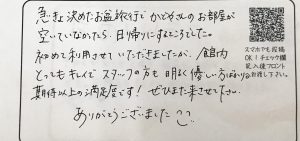 急きょ決めたお盆旅行で かどやさんのお部屋が
空いていなかったら、日帰りにするところでした。
初めて利用させていただきましたが、館内
とってもキレイで スタッフの方も 明るく優しい方ばかりで
期待以上の満足度です！ぜひまた来させて下さい。
ありがとうございました
スマホでも投稿
OK！チェック欄
記入後フロント
お渡し下さい。